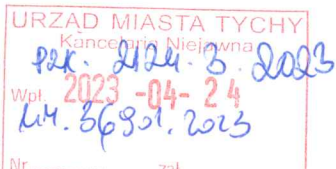 URZĄD MIASTA TYCHY
Kancelaria Niejawna
PZK. 2124. 3. 2023
Wpł. 2023 -04- 24
36901. 2023
Nr zał.